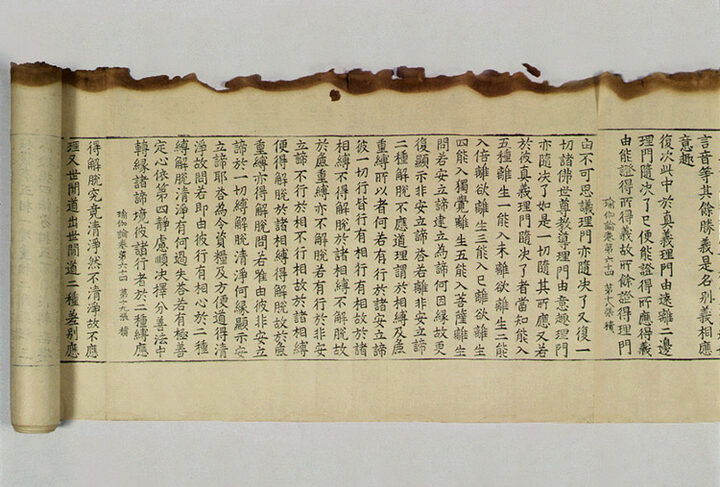 言音等其餘勝義是名別義相應
意趣
復次此中於真義理門由遠離二邊
理門隨決了已便能證得所應得義
由能證得所得義故所餘證得理門
瑜伽論卷第六十四 第十八張 積
由不可思議理門亦隨決了又復一
切諸佛世尊教導理門由意趣理門
亦隨決了如是一切隨其所應又若
於彼真義理門隨決了者當知能入
五種離生一能入未離欲離生二能
入倍離欲離生三能入已離欲離生
四能入獨覺離生五能入菩薩離生
問若安立諦建立為諦何因緣故更
復顯示非安立諦答若離非安立諦
二種解脫不應道理謂於相縛及麁
重縛所以者何若有行於諸安立諦
彼一切行皆行有相行有相故於諸
相縛不得解脫於諸相縛不解脫故
於麁重縛亦不解脫若有行於非安
立諦不行於相不行相故於諸相縛
便得解脫於諸相縛得解脫故於麁
重縛亦得解脫問若唯由彼非安立
諦於一切縛解脫清淨何緣顯示安
立諦耶答為令資糧及方便道得清
淨故問若即由彼行有相心於二種
縛解脫清淨有何過失答若有極善
定心依第四靜慮順決擇分善法中
轉緣諸諦境彼諸行者於二種縛應
瑜伽論卷第六十四 第十九張 積
得解脫究竟清淨然不清淨故不應
理又世間道出世間道二種差別應